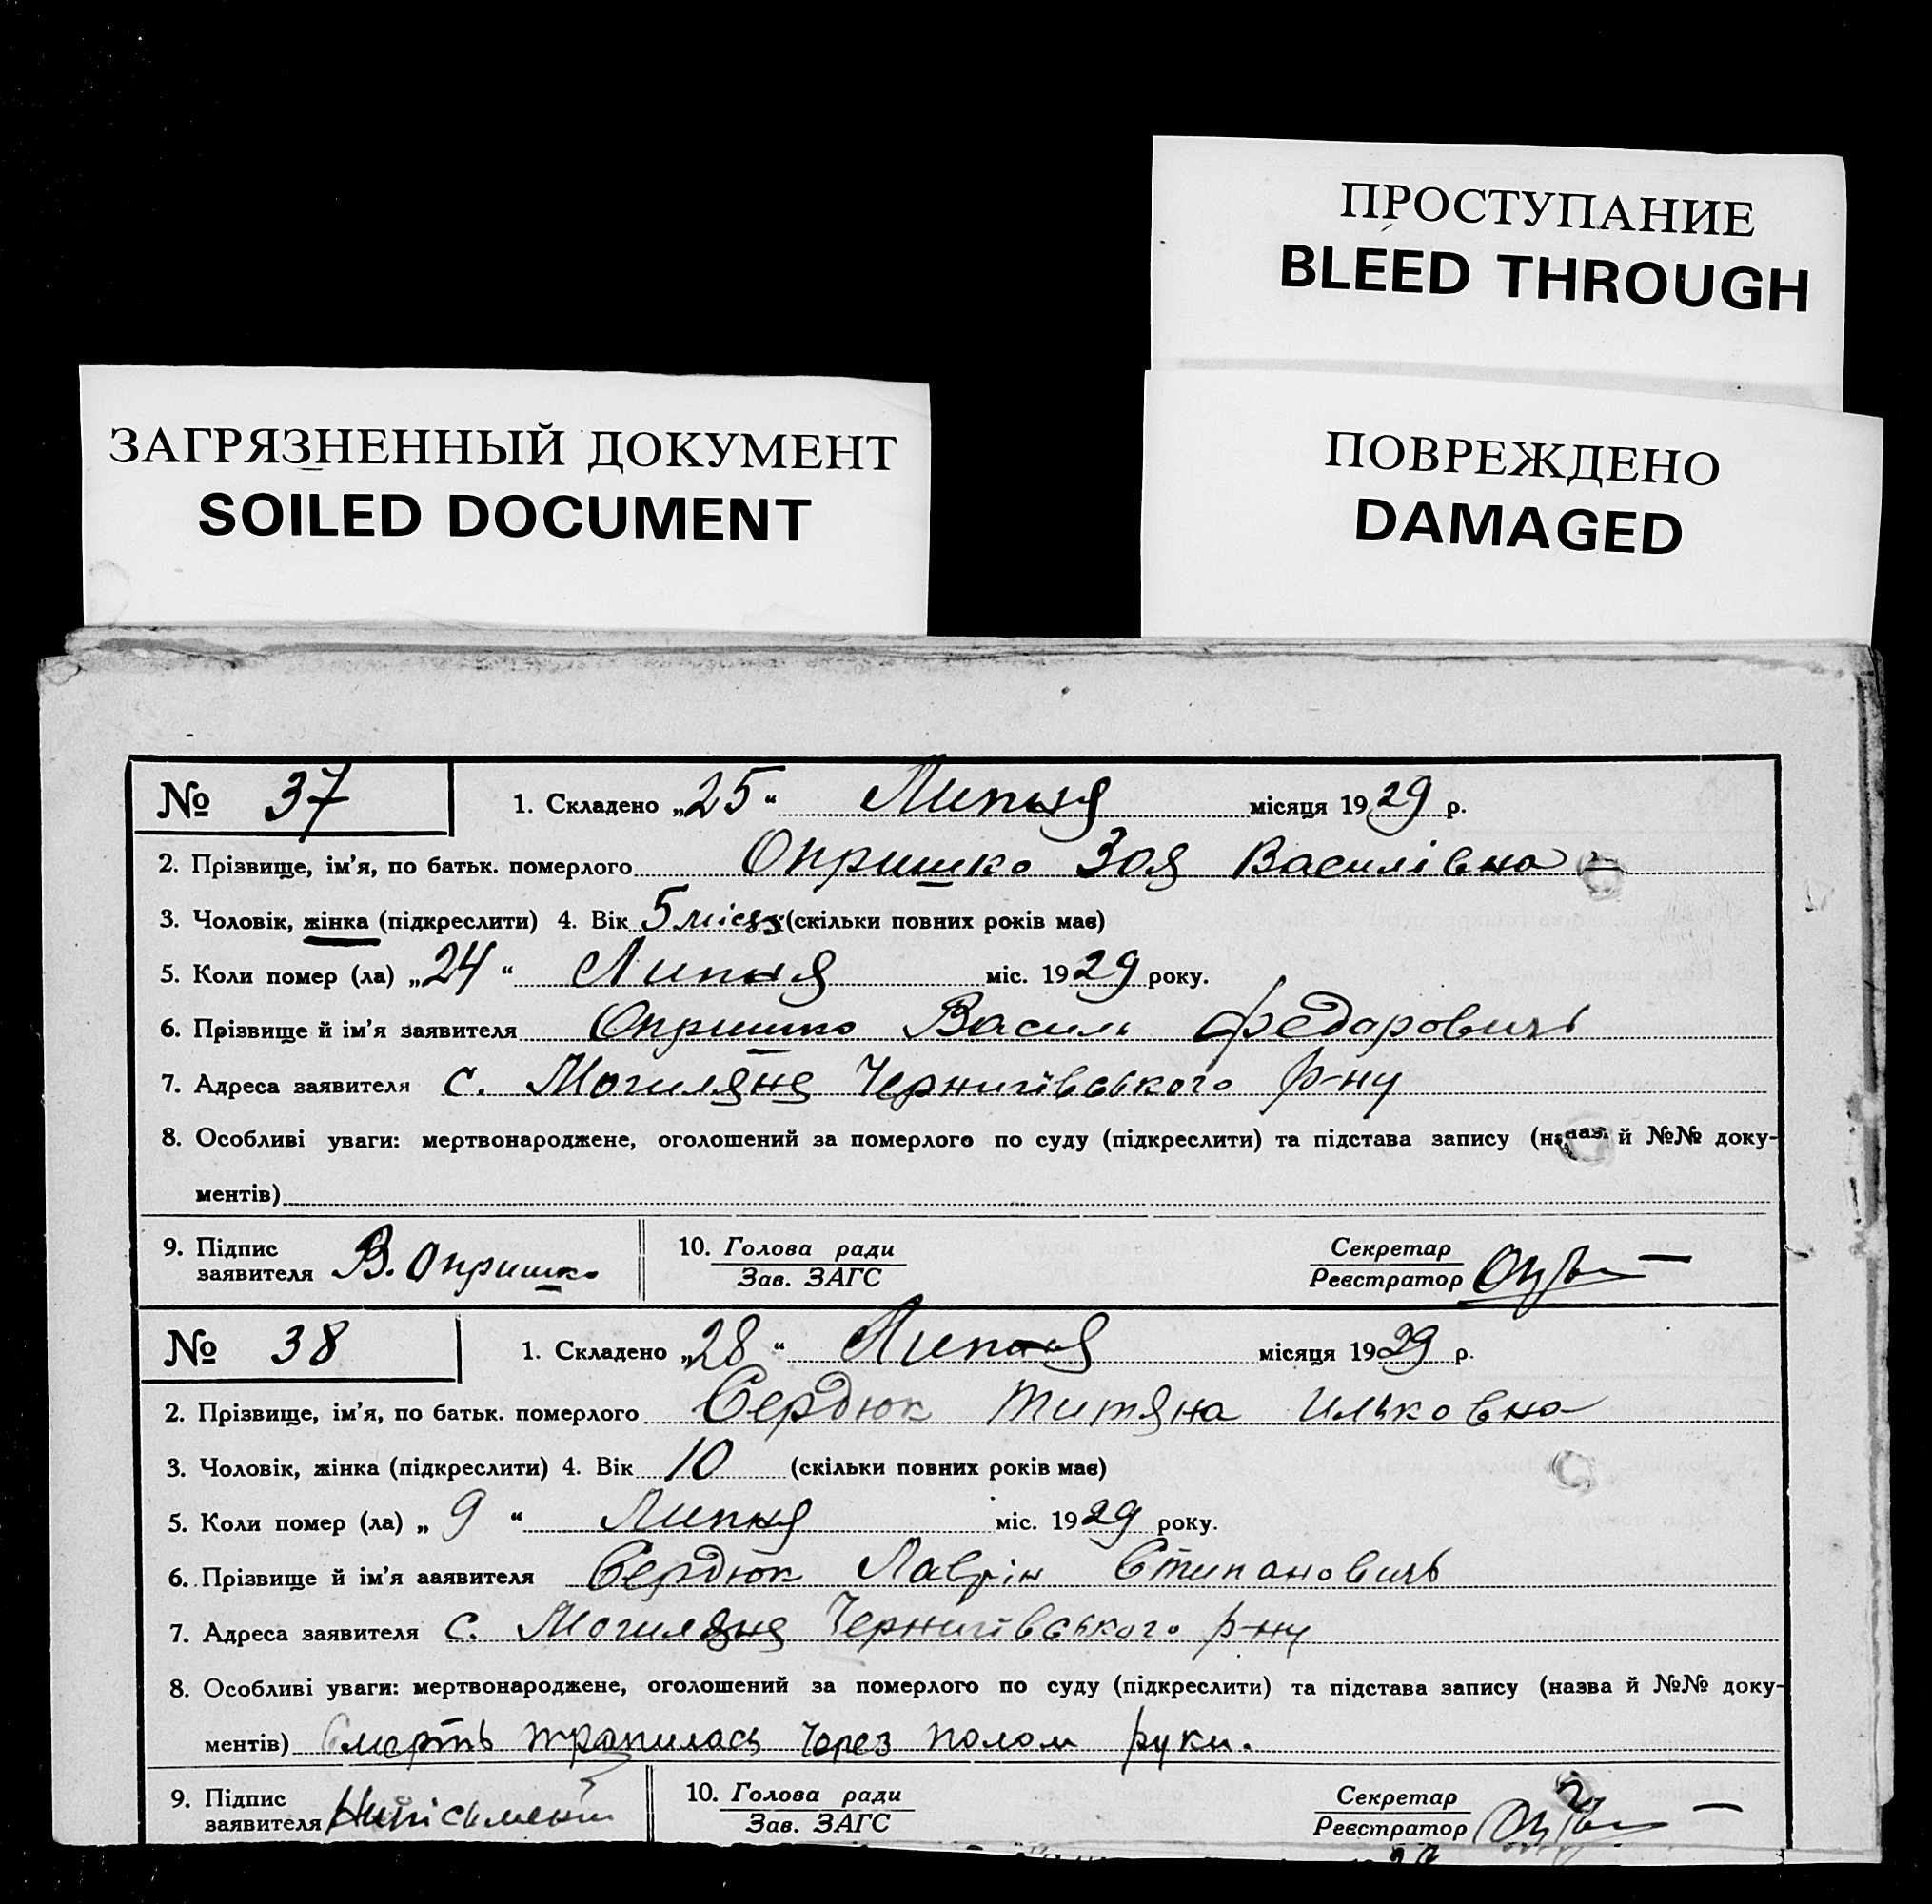 ПРОСТУПАНИЕ
BLEED THROUGH
ЗАГРЯЗНЕННЫЙ ДОКУМЕНТ
SOILED DOCUMENT
ПОВРЕЖДЕНО
DAMAGED
№ 37 1. Складено „25“ Липня місяця 1929 р.
2. Прізвище, ім’я, по батьк. померлого Опришко Зоя Василівна
3. Чоловік, жінка (підкреслити) 4. Вік 5 (скільки повних років має)
5. Коли помер (ла) „24“ Липня міс. 1929 року.
6. Прізвище й ім’я заявителя Опришко Василь Федаровичь
7. Адреса заявителя с. Могиляна Чернигівського р-ну
8. Особливі уваги: мертвонароджене, оголошений за померлого по суду (підкреслити) та підстава запису й №№ доку-
ментів)
9. Підпис заявителя В. Опришко 10. Голова ради Зав. ЗАГС Секретар Реєстратор
№ 38 1. Складено „28“ Липня місяця 1929 р.
2. Прізвище, ім’я, по батьк. померлого Сердюк Титяна Ильковна
3. Чоловік, жінка (підкреслити) 4. Вік 10 (скільки повних років має)
5. Коли помер (ла) „9“ Липня міс. 1929 року.
6. Прізвище й ім’я заявителя Сердюк Лаврін Стипановичь
7. Адреса заявителя с. Могиляна Чернигівського р-ну
8. Особливі уваги: мертвонароджене, оголошений за померлого по суду (підкреслити) та підстава запису (назва й №№ доку-
ментів) Смерть трапилась через полом руки.
9. Підпис заявителя 10. Голова ради Зав. ЗАГС Секретар Реєстратор